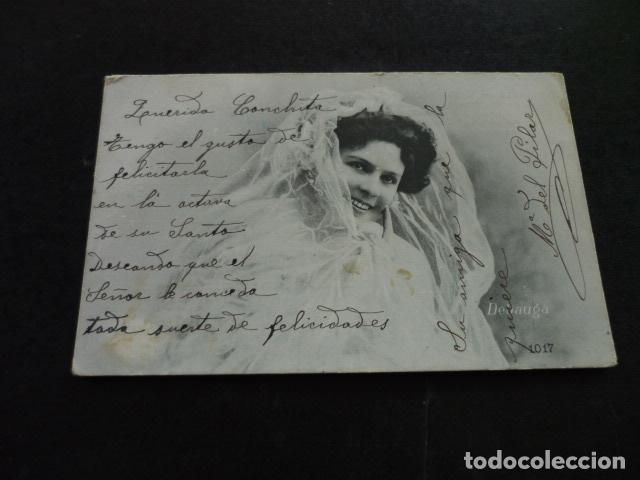 Querida Conchita
Tengo el gusto de
felicitarla
en la octava
de su Santo
Deseando que el
Señor le conceda
toda suerte de felicidades
Su amiga que la
quiere
Mª del Pilar
Denauga
1017
todocoleccion.net